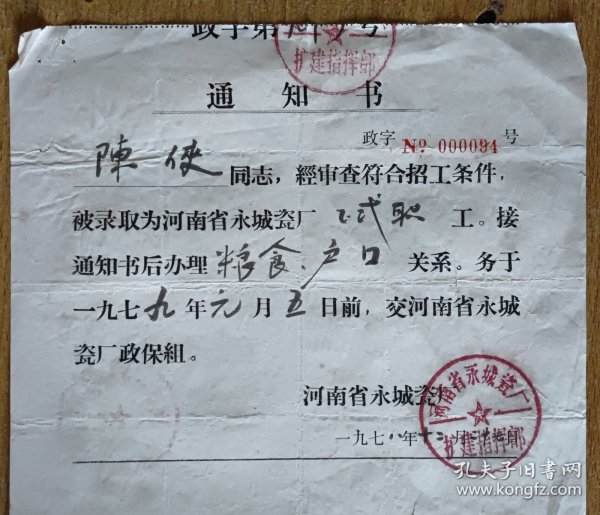 政字第
扩建指挥部
通知书
政字 № 000094 号
陳俠 同志，經审查符合招工条件，
被录取为河南省永城瓷厂 正式职 工。接
通知书后办理 粮食、户口 关系。务于
一九七九年元月五日前，交河南省永城
瓷厂政保組。
河南省永城瓷厂
一九七八年十二月
河南省永城瓷厂
扩建指挥部
孔夫子旧书网
www.kongfz.com